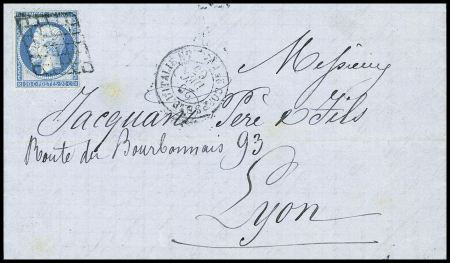 Messieurs
Jacquand Père & Fils
Route du Bourbonnais 93
Lyon